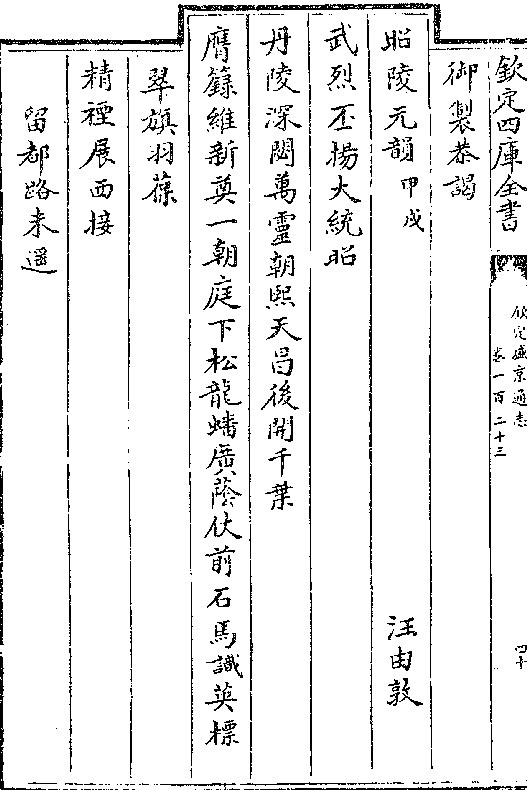 欽定四庫全書
欽定盛京通志
卷一百二十三
四十
御製恭謁
昭陵元韻甲戌
汪由敦
武烈丕揚大統昭
丹陵深閟萬靈朝熙天昌後開千葉
膺籙維新奠一朝庭下松龍蟠廣蔭仗前石馬識英標
翠旗羽葆
精禋展西接
留都路未遥